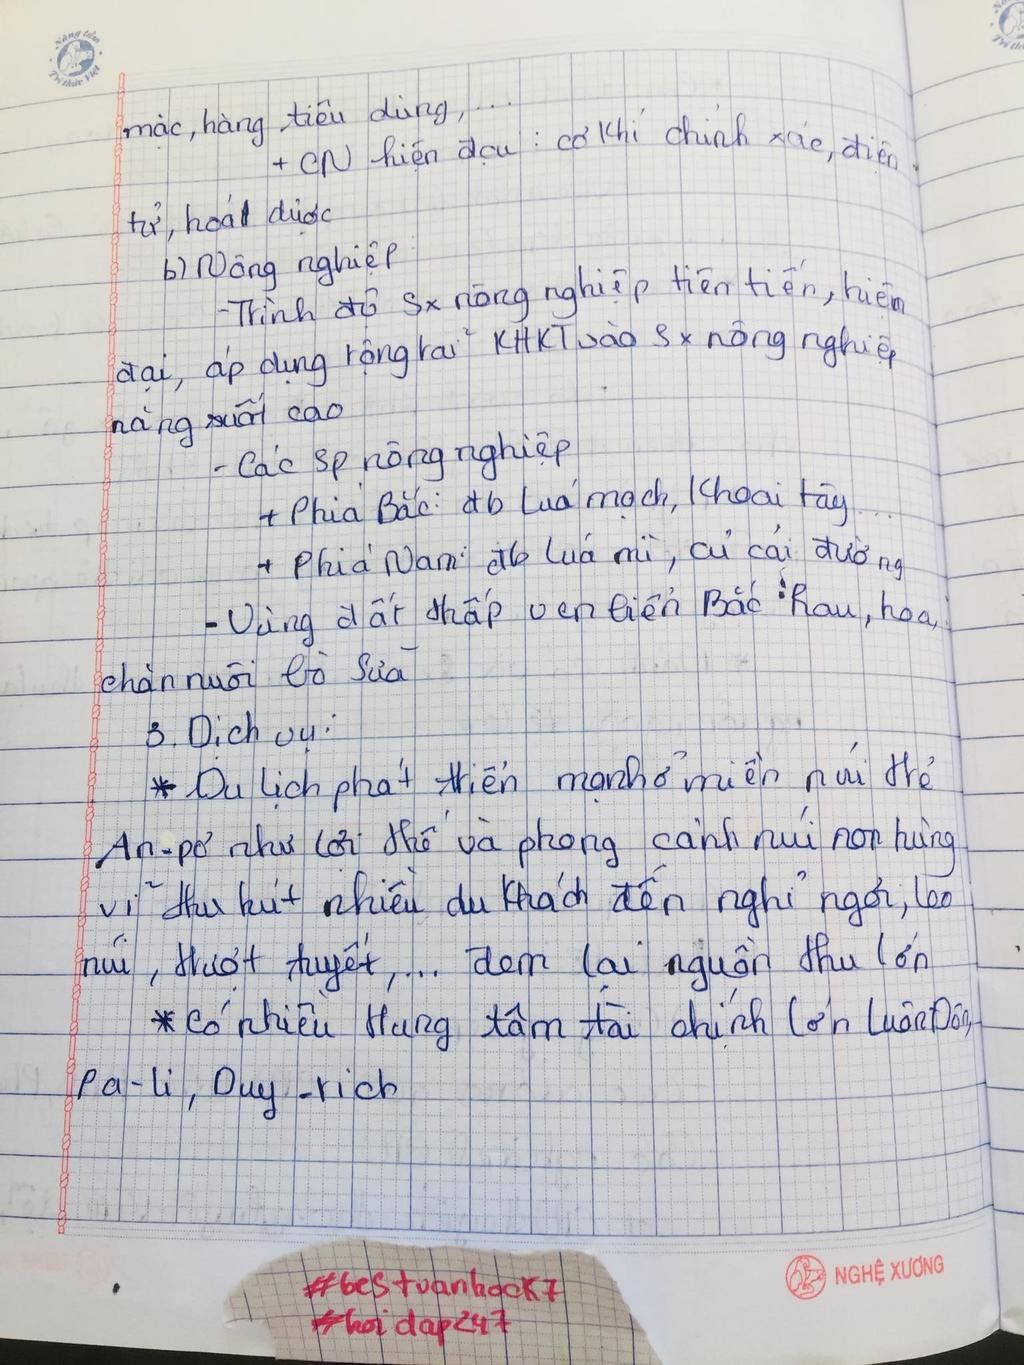 Nâng tầm
Tri thức Việt
mặc, hàng tiêu dùng,...
+ CN hiện đại : cơ khí chính xác, điện
tử, hoá dược
b) Nông nghiệp
- Trình độ sx nông nghiệp tiên tiến, hiện
đại, áp dụng rộng rãi KHKT vào sx nông nghiệp
năng suất cao
- Các sp nông nghiệp
+ Phía Bắc: đb Luá mạch, Khoai tây...
+ Phía Nam: đb luá mì, củ cải đường
- Vùng đất thấp ven biển Bắc : Rau, hoa,
chăn nuôi bò sữa
3. Dịch vụ:
* Du lịch phát triển mạnh ở miền núi trẻ
An-pơ nhờ lợi thế và phong cảnh núi non hùng
vĩ thu hút nhiều du khách đến nghỉ ngơi, leo
núi, trượt tuyết,... đem lại nguồn thu lớn
* Có nhiều trung tâm tài chính lớn Luân Đôn,
Pa-li, Duy-rich
NGHỆ XƯƠNG
#bestvanhock7
#hoidap247